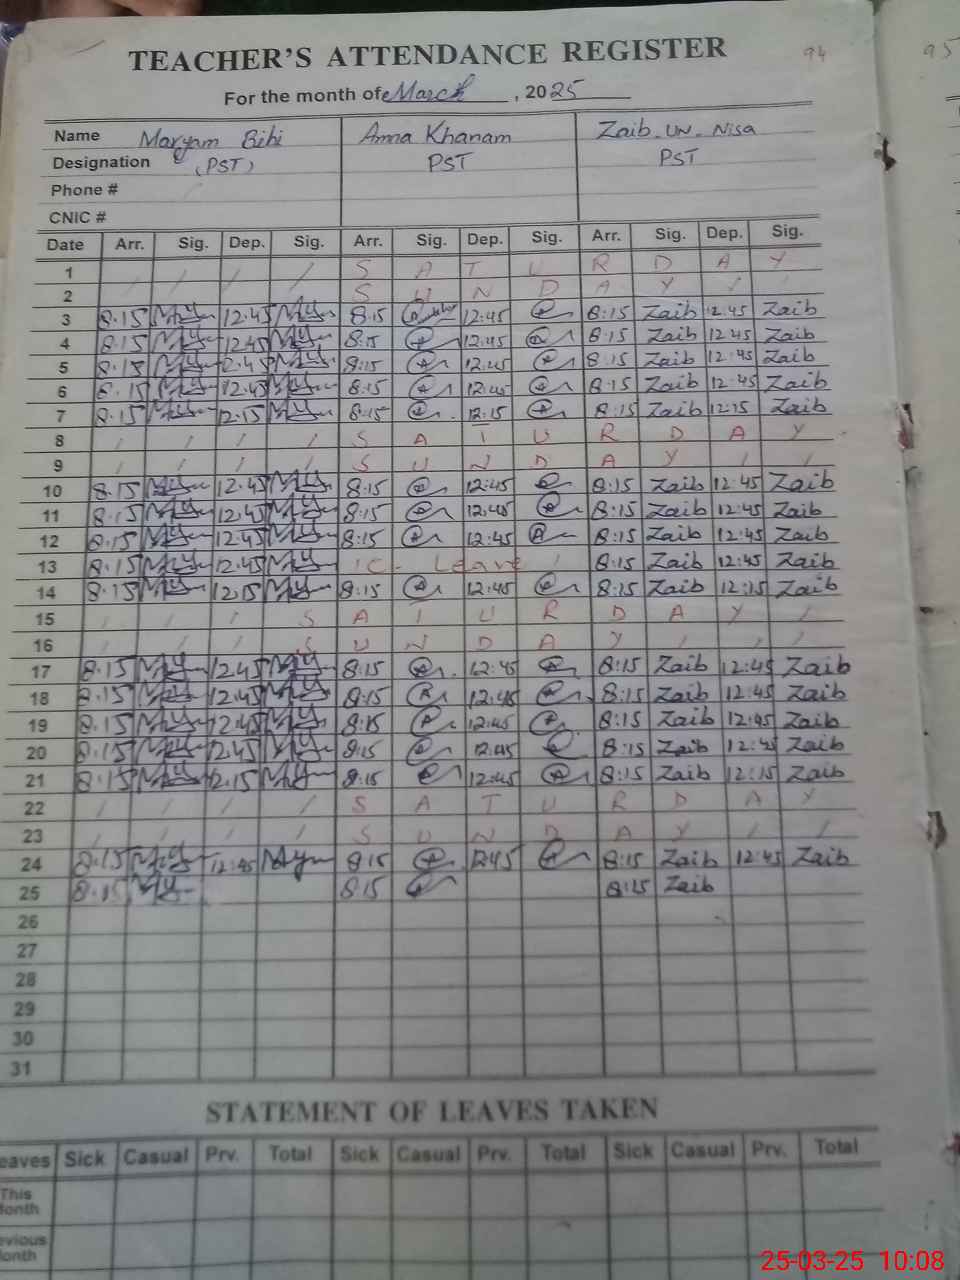 TEACHER'S ATTENDANCE REGISTER 94 95
For the month of March, 2025
Name Maryam Bibi Amna Khanam Zaib_UN_Nisa
Designation (PST) PST PST
Phone #
CNIC #
Date Arr. Sig. Dep. Sig. Arr. Sig. Dep. Sig. Arr. Sig. Dep. Sig.
1 / / / / S A T U R D A Y
2 / / / / S U N D A Y / /
3 8:15 12:45 8:15 12:45 8:15 Zaib 12:45 Zaib
4 8:15 12:45 8:15 12:45 8:15 Zaib 12:45 Zaib
5 8:15 12:45 8:15 12:45 8:15 Zaib 12:45 Zaib
6 8:15 12:45 8:15 12:45 8:15 Zaib 12:45 Zaib
7 8:15 12:15 8:15 12:15 8:15 Zaib 12:15 Zaib
8 / / / / S A T U R D A Y
9 / / / / S U N D A Y / /
10 8:15 12:45 8:15 12:45 8:15 Zaib 12:45 Zaib
11 8:15 12:45 8:15 12:45 8:15 Zaib 12:45 Zaib
12 8:15 12:45 8:15 12:45 8:15 Zaib 12:45 Zaib
13 8:15 12:45 C- Leave 8:15 Zaib 12:45 Zaib
14 8:15 12:15 8:15 12:45 8:15 Zaib 12:15 Zaib
15 / / / S A T U R D A Y / /
16 / / / S U N D A Y / / /
17 8:15 12:45 8:15 12:45 8:15 Zaib 12:45 Zaib
18 8:15 12:45 8:15 12:45 8:15 Zaib 12:45 Zaib
19 8:15 12:45 8:15 12:45 8:15 Zaib 12:45 Zaib
20 8:15 12:45 8:15 12:45 8:15 Zaib 12:45 Zaib
21 8:15 12:15 8:15 12:45 8:15 Zaib 12:15 Zaib
22 / / / / S A T U R D A Y
23 / / / / S U N D A Y / /
24 8:15 12:45 8:15 12:45 8:15 Zaib 12:45 Zaib
25 8:15 8:15 8:15 Zaib
26
27
28
29
30
31
STATEMENT OF LEAVES TAKEN
eaves Sick Casual Prv. Total Sick Casual Prv. Total Sick Casual Prv. Total
This
onth
evious
onth
25-03-25 10:08